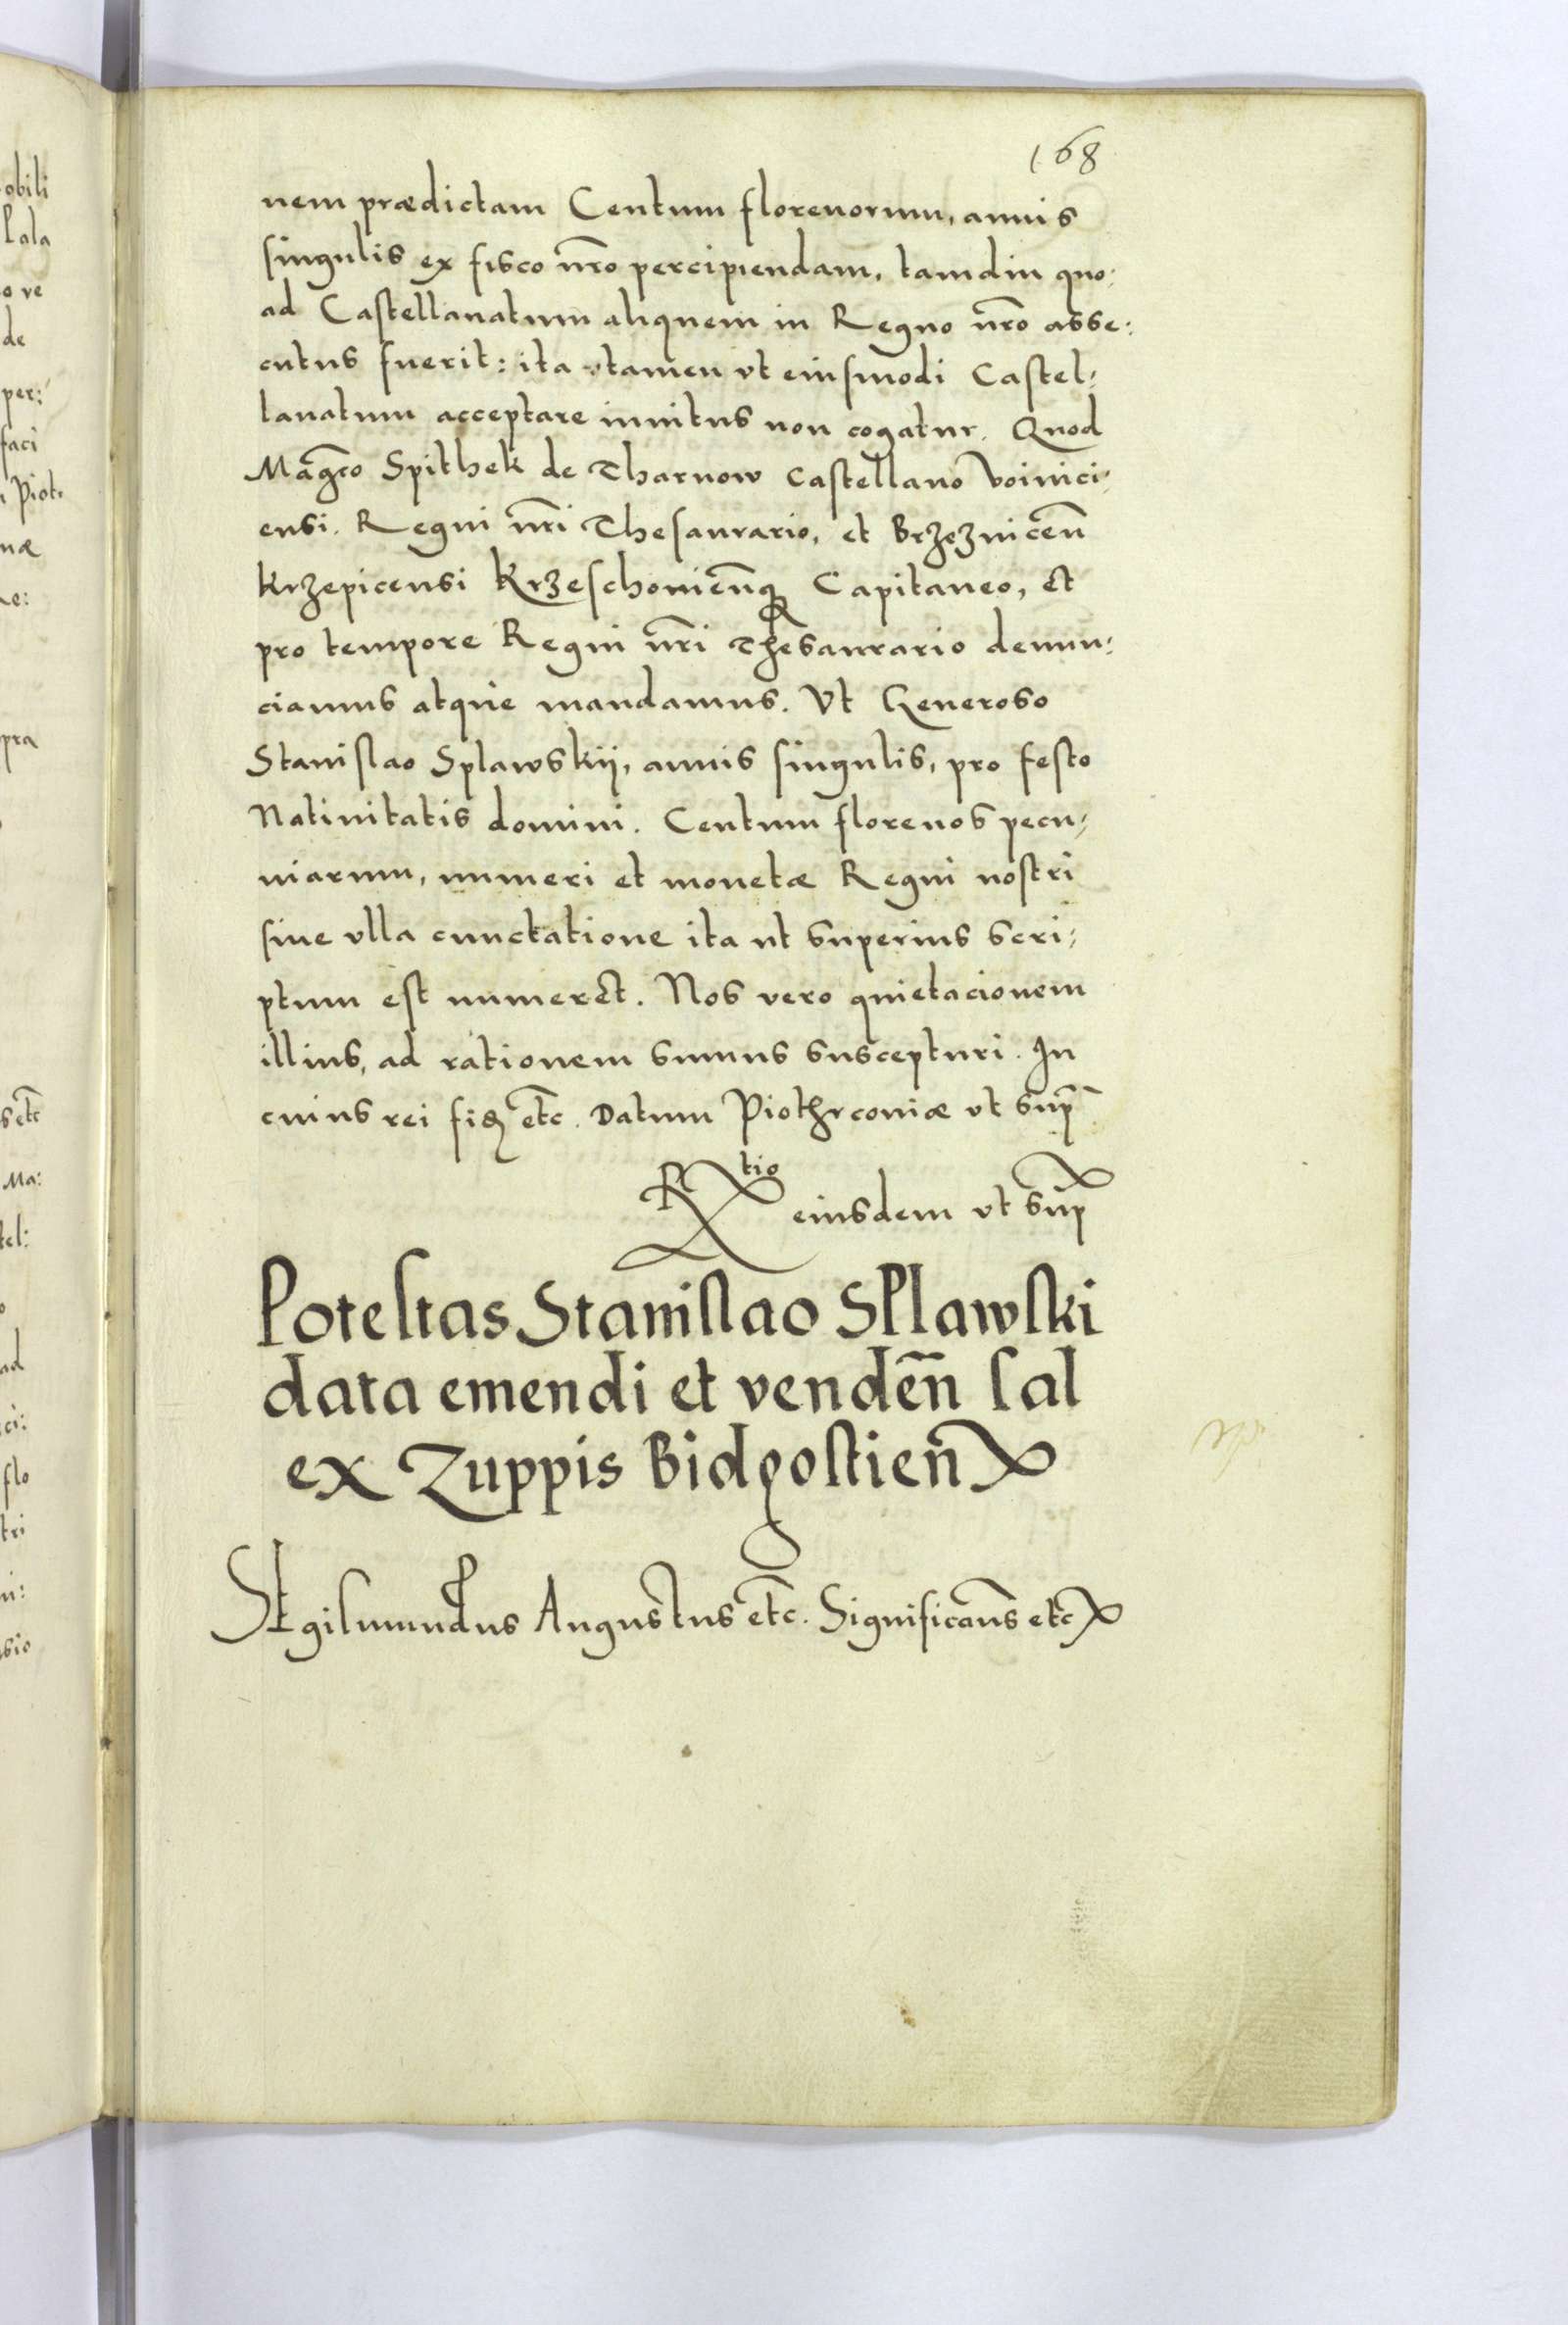 168
nem prædictam Centum florenorum, annis
singulis ex fisco nr̃o percipiendam, tamdiu quo:
ad Castellanatum aliquem in Regno nr̃o asse:
cutus fuerit: ita tamen vt eiusmodi Castel:
lanatum acceptare inuitus non cogatur. Quod
Mag̃co Spithek de Tharnow Castellano Voinici:
ensi. Regni nr̃i Thesaurario, et Brzeznicen̄
Krzepicensi Krzeschouien̄q Capitaneo, et
pro tempore Regni nr̃i Thesaurario denun:
ciamus atque mandamus. Vt Generoso
Stanislao Splawskij, annis singulis, pro festo
Natiuitatis domini. Centum florenos pecu:
niarum, numeri et monetæ Regni nostri
sine vlla cunctatione ita ut superius scri:
ptum est numeret. Nos vero quietacionem
illius, ad rationem sumus suscepturi. In
cuius rei fiꝫ etc̃. Datum Piothrconiæ vt sup̄
Rtio eiusdem vt sup̄
Potestas Stanislao SPlawski
data emendi et venden̄ sal
ex Zuppis Bidgostien̄
Sigismundus Augustus etc̃. Significam̄s etc̃
obili
Pala
o ve
de
per:
faci
Piot:
næ
e:
pra
s etc̃
Ma:
tel:
o
ad
ci:
flo
tri
ni:
sio